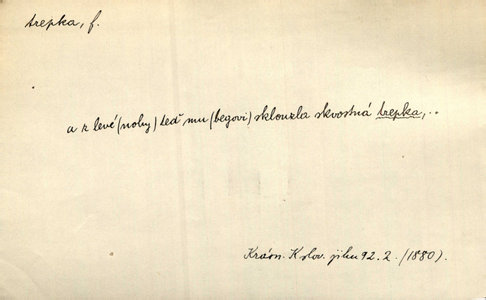 trepka, f.
a z levé (nohy) teď mu (begovi) sklouzla skvostná trepka,..
Krásn. K slov. jihu 92. 2. (1880).